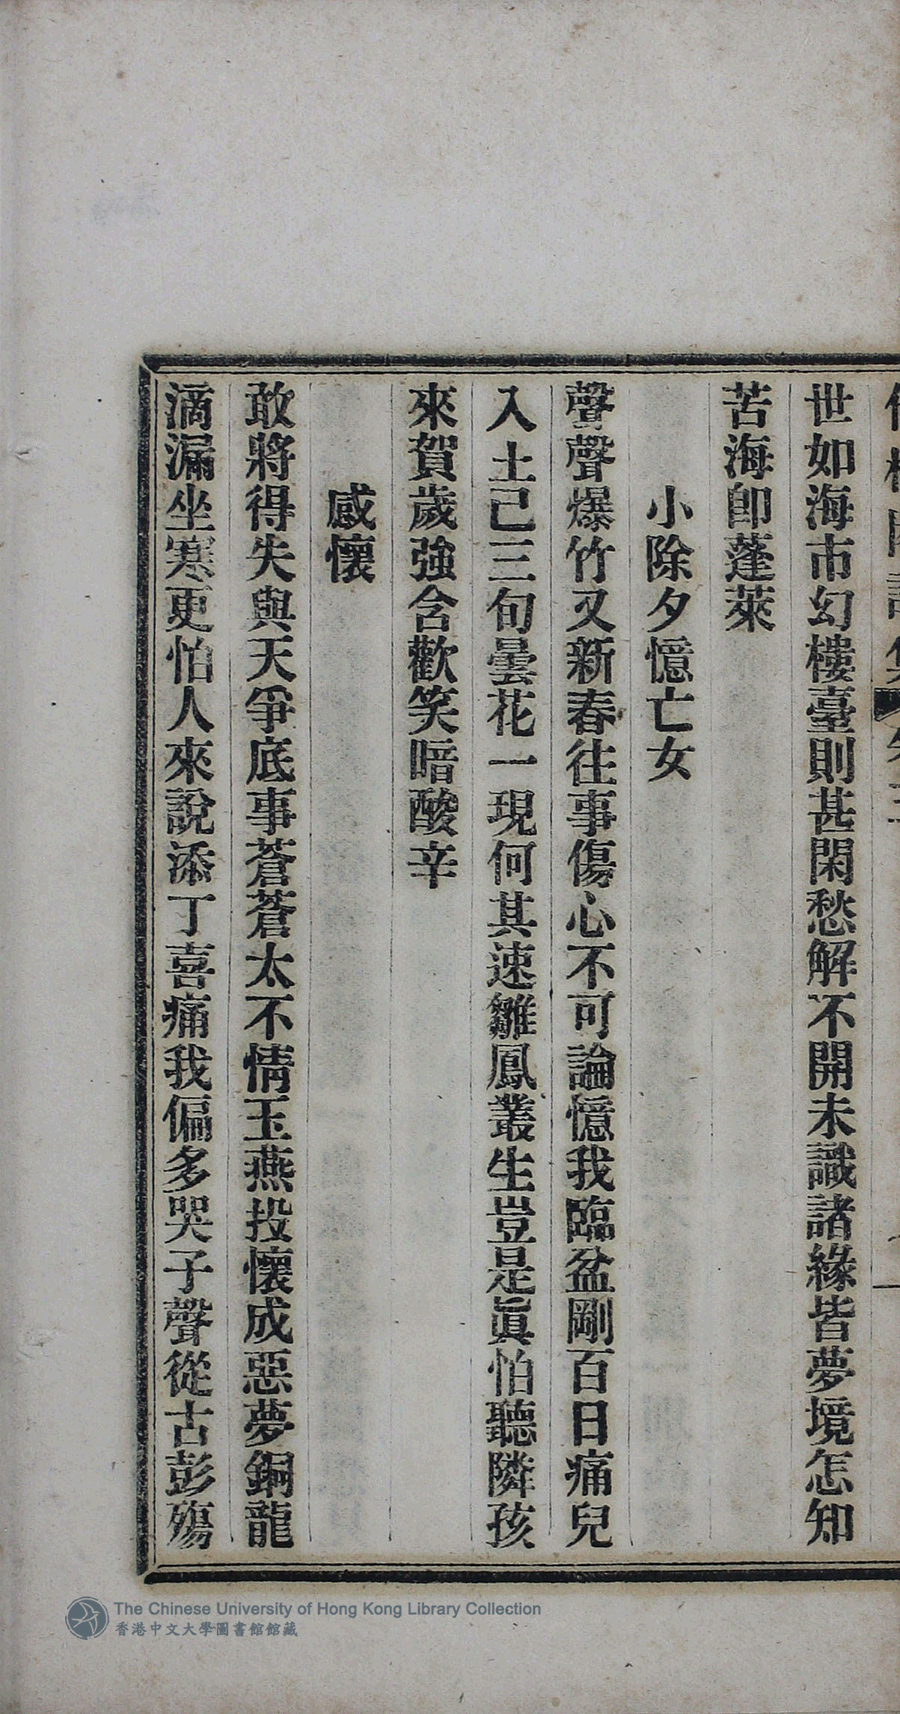 世如海市幻樓臺則甚閑愁解不開未識諸緣皆夢境怎知
苦海卽蓬萊
小除夕憶亡女
聲聲爆竹又新春往事傷心不可論憶我臨盆剛百日痛兒
入土已三旬曇花一現何其速雛鳳叢生豈是眞怕聽隣孩
來賀歲強含歡笑喑酸辛
感懷
敢將得失與天爭底事蒼蒼太不情玉燕投懷成惡夢銅龍
滴漏坐寒更怕人來說添丁喜痛我偏多哭子聲從古彭殤
The Chinese University of Hong Kong Library Collection
香港中文大學圖書館館藏